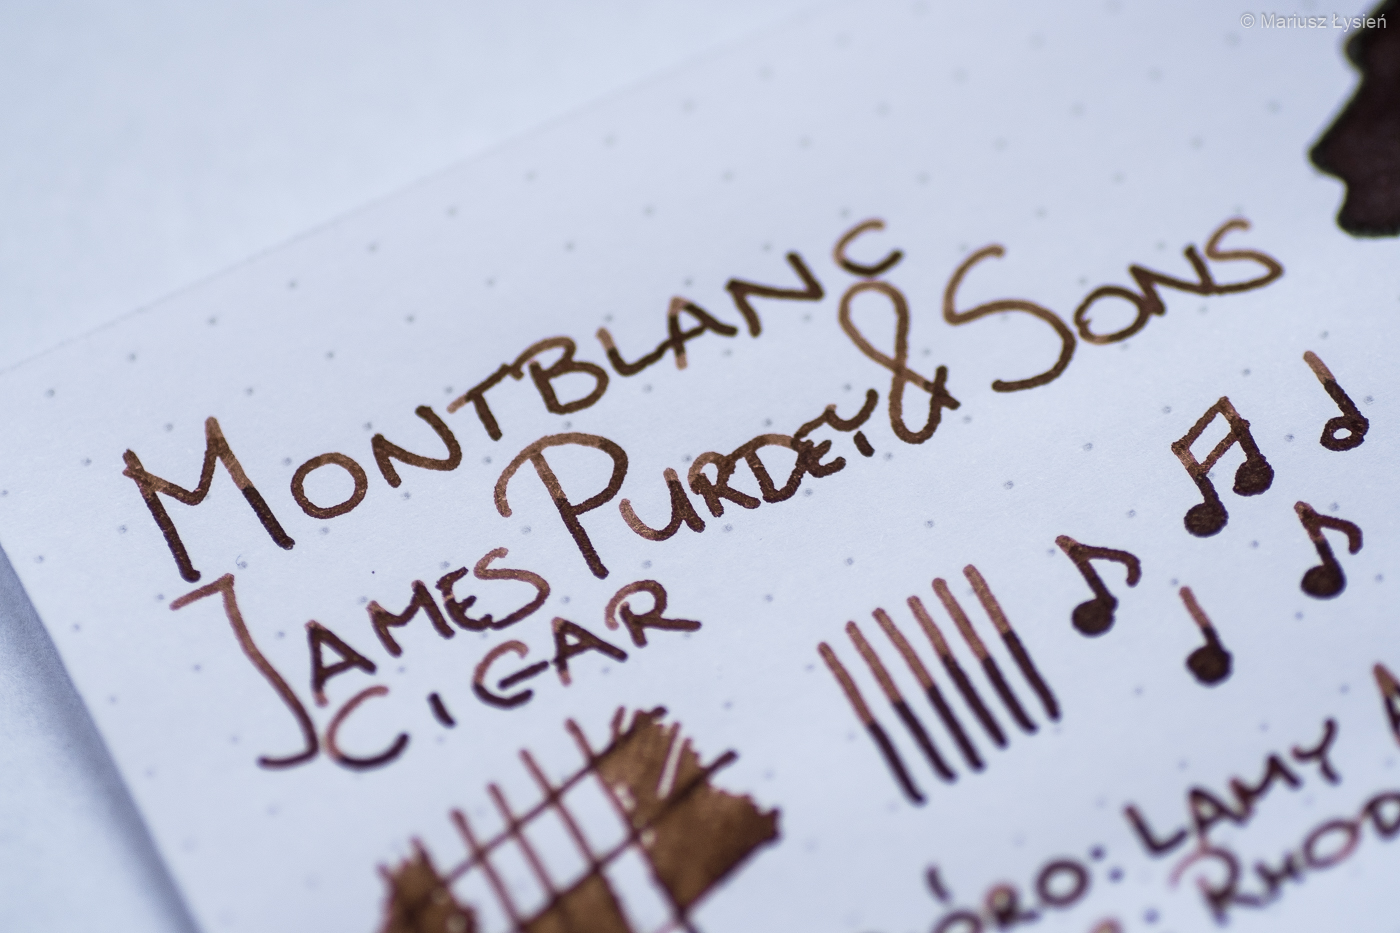 © Mariusz Łysień
MONTBLANC
JAMES PURDEY & SONS
CIGAR
LAMY